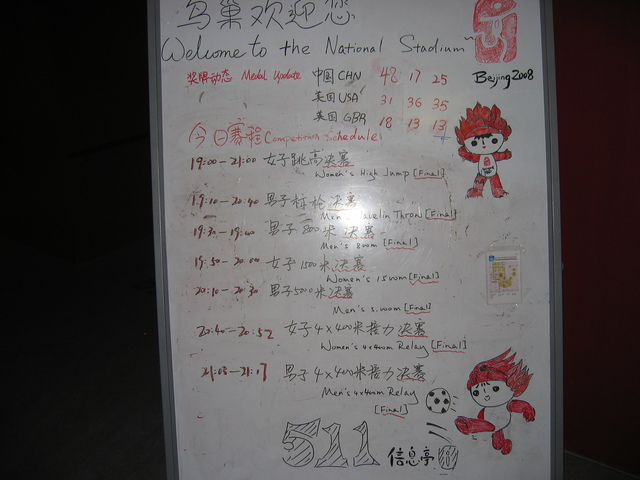 鸟巢欢迎您
Welcome to the National Stadium~
奖牌动态 Medal Update 中国 CHN 48 17 25
Beijing 2008
英国 USA 31 36 35
英国 GBR 18 13 13
今日赛程 Competition Schedule:
19:00-21:00 女子跳高决赛
Women's High Jump [Final]
19:10-20:40 男子标枪决赛
Men's Javelin Throw [Final]
19:30-19:40 男子800米决赛
Men's 800m [Final]
19:50-20:00 女子1500米决赛
Women's 1500m [Final]
20:10-20:30 男子5000米决赛
Men's 5.000m [Final]
20:40-20:52 女子4×400米接力决赛
Women's 4x400m Relay [Final]
21:05-21:17 男子4×400米接力决赛
Men's 4x400m Relay
[Final]
511 信息亭